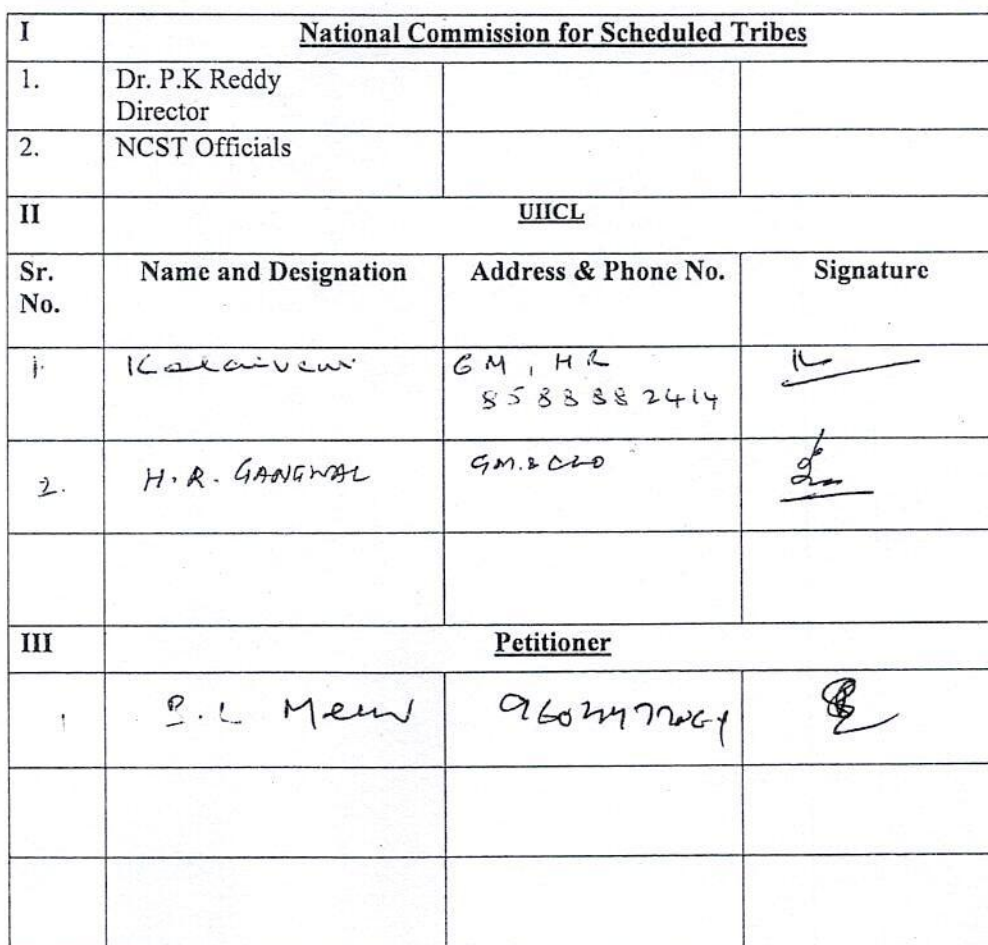 I National Commission for Scheduled Tribes
1. Dr. P.K Reddy
Director
2. NCST Officials
II UIICL
Sr. Name and Designation Address & Phone No. Signature
No.
1. Kalaiveni GM, HR
8588882414
2. H.R. GANGWAL GM. &
III Petitioner
1